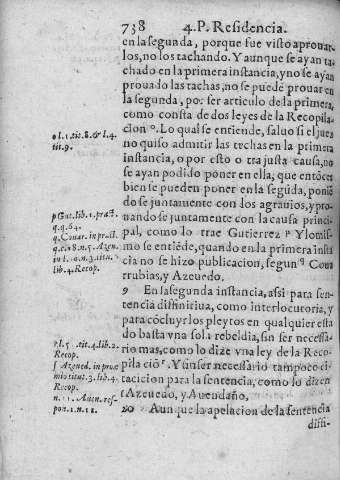 738 4. P. Residencia.
en la segunda, porque fue visto aprouar
los, no los tachando. Y aunque se ayan ta
chado en la primera instancia, y no se ayan
prouado las tachas, no se puede prouar en
la segunda, por ser articulo de la primera,
como consta de dos leyes de la Recopila
cion º. Lo qual se entiende, saluo si el juez
no quiso admitir las tachas en la primera
instancia, o por esto o tra justa causa, no
se ayan podido poner en ella, que entōces
bien se pueden poner en la segūda, poniē
dose juntamente con los agrauios, y pro-
uandose juntamente con la causa princi-
pal, como lo trae Gutierrez p Y lo mis-
mo se entiēde, quando en la primera insta
cia no se hizo publicacion, segun q Coua
rrubias, y Azeuedo.
9 En la segunda instancia, assi para sen-
tencia difinitiua, como interlocutoria, y
para cōcluyr los pleytos en qualquier esta
do basta vna sola rebeldia, sin ser necessa
rio mas, como lo dize vna ley de la Reco
pilaciō r. Y sin ser necessario tampoco ci-
tacion para la sentencia, como lo dizen
s Azeuedo, y Auendaño.
20 Aunque la apelacion de la sentencia
difi-
o l. 1. tit. 8. & l. 4.
tit. 9.
p Gut. lib. 1. pract.
q. 64.
q Couar. in pract.
q. c. 18. n. 5. Azeu.
in l. 10. n. 3. titu.
lib. 4. Recop.
r l. 5. tit. 4. lib. 2.
Recop.
s Azeued. in proe
mio titul. 3. lib. 4.
Recop.
n. 11. Auen. res-
pon. 1. n. 11.